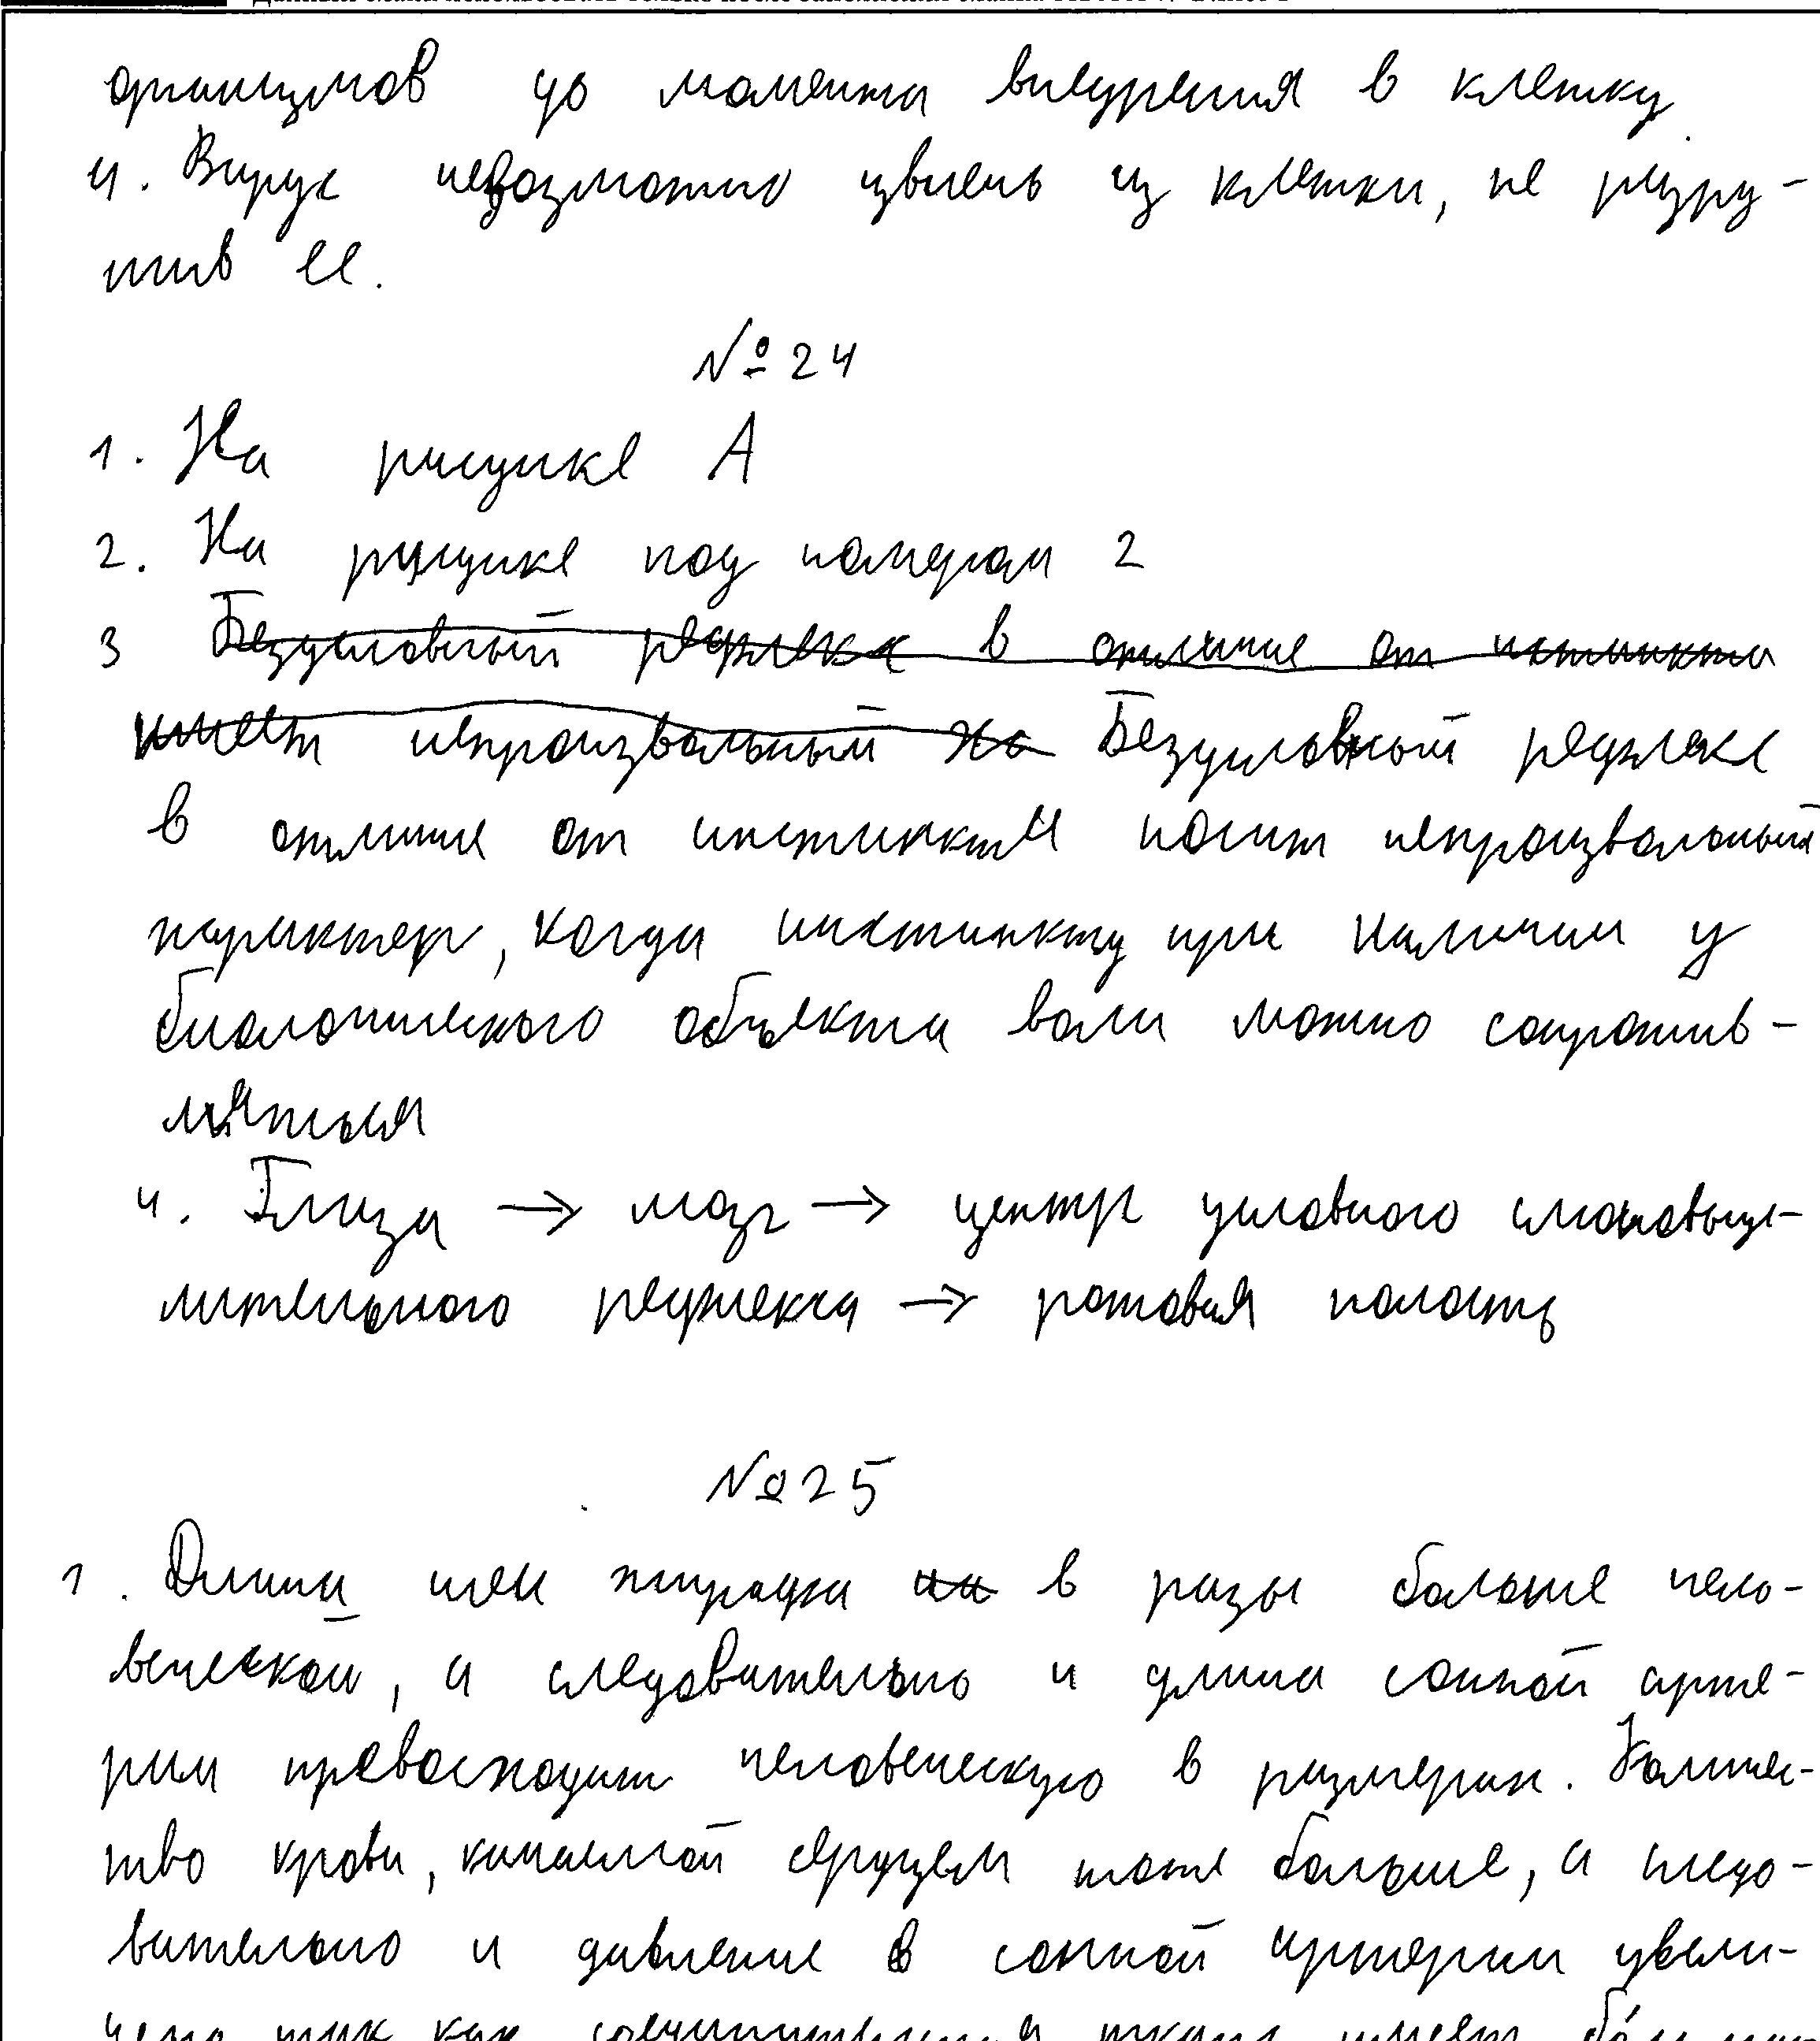 организмов до момента внедрения в клетку.
4. Вирус невозможно извлечь из клетки, не разру-
шив ее.
№ 24
1. На рисунке А
2. На рисунке под номером 2
3 Безусловный рефлекс в отличие от инстинкта
имеет непроизвольный ха Безусловный рефлекс
в отличие от инстинкта носит непроизвольный
характер, когда инстинкту при наличии у
биологического объекта воли можно сопротив-
ляться
4. Глаза → мозг → центр условного слюновыде-
лительного рефлекса → ротовая полость
№ 25
1. Длина шеи жирафа в разы больше чело-
веческой, а следовательно и длина сонной арте-
рии превосходит человеческую в размерах. Количес-
тво крови, качаемой сердцем тоже больше, а следо-
вательно и давление в сонной артерии увели-
чено так как соединительная ткань имеет